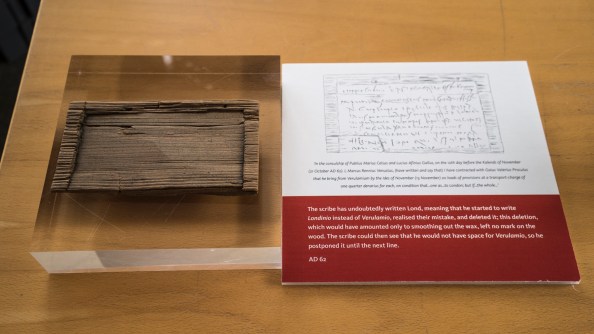 In the consulship of Publius Marius Celsus and Lucius Afinius Gallus, on the 12th day before the Kalends of November
(21 October AD 62). I, Marcus Rennius Venustus, (have written and say that) I have contracted with Gaius Valerius Proculus
that he bring from Verulamium by the Ides of November (13 November) 20 loads of provisions at a transport-charge of
one-quarter denarius for each, on condition that... one as... to London; but if... the whole...
The scribe has undoubtedly written Lond, meaning that he started to write
Londinio instead of Verulamio, realised their mistake, and deleted it; this deletion,
which would have amounted only to smoothing out the wax, left no mark on the
wood. The scribe could then see that he would not have space for Verulamio, so he
postponed it until the next line.
AD 62